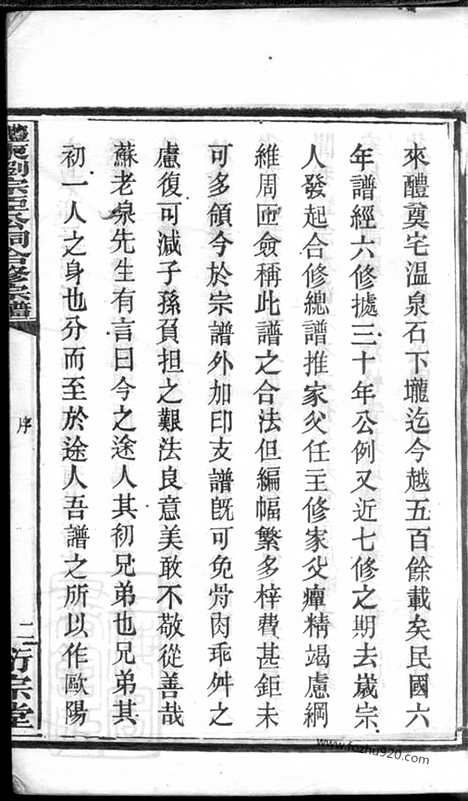 來醴奠宅溫泉石下壠迄今越五百餘載矣民國六
年譜經六修據三十年公例又近七修之期去歲宗
人發起合修總譜推家父任主修家父癉精竭慮綱
維周匝僉稱此譜之合法但編幅繁多梓費甚鉅未
可多領今於宗譜外加印支譜旣可免骨肉乖舛之
慮復可減子孫負担之艱法良意美敢不敬從善哉
蘇老泉先生有言曰今之途人其初兄弟也兄弟其
初一人之身也分而至於途人吾譜之所以作歐陽
醴東劉宗臣公祠合修宗譜
序
二
行宗堂
www.fozhu920.com